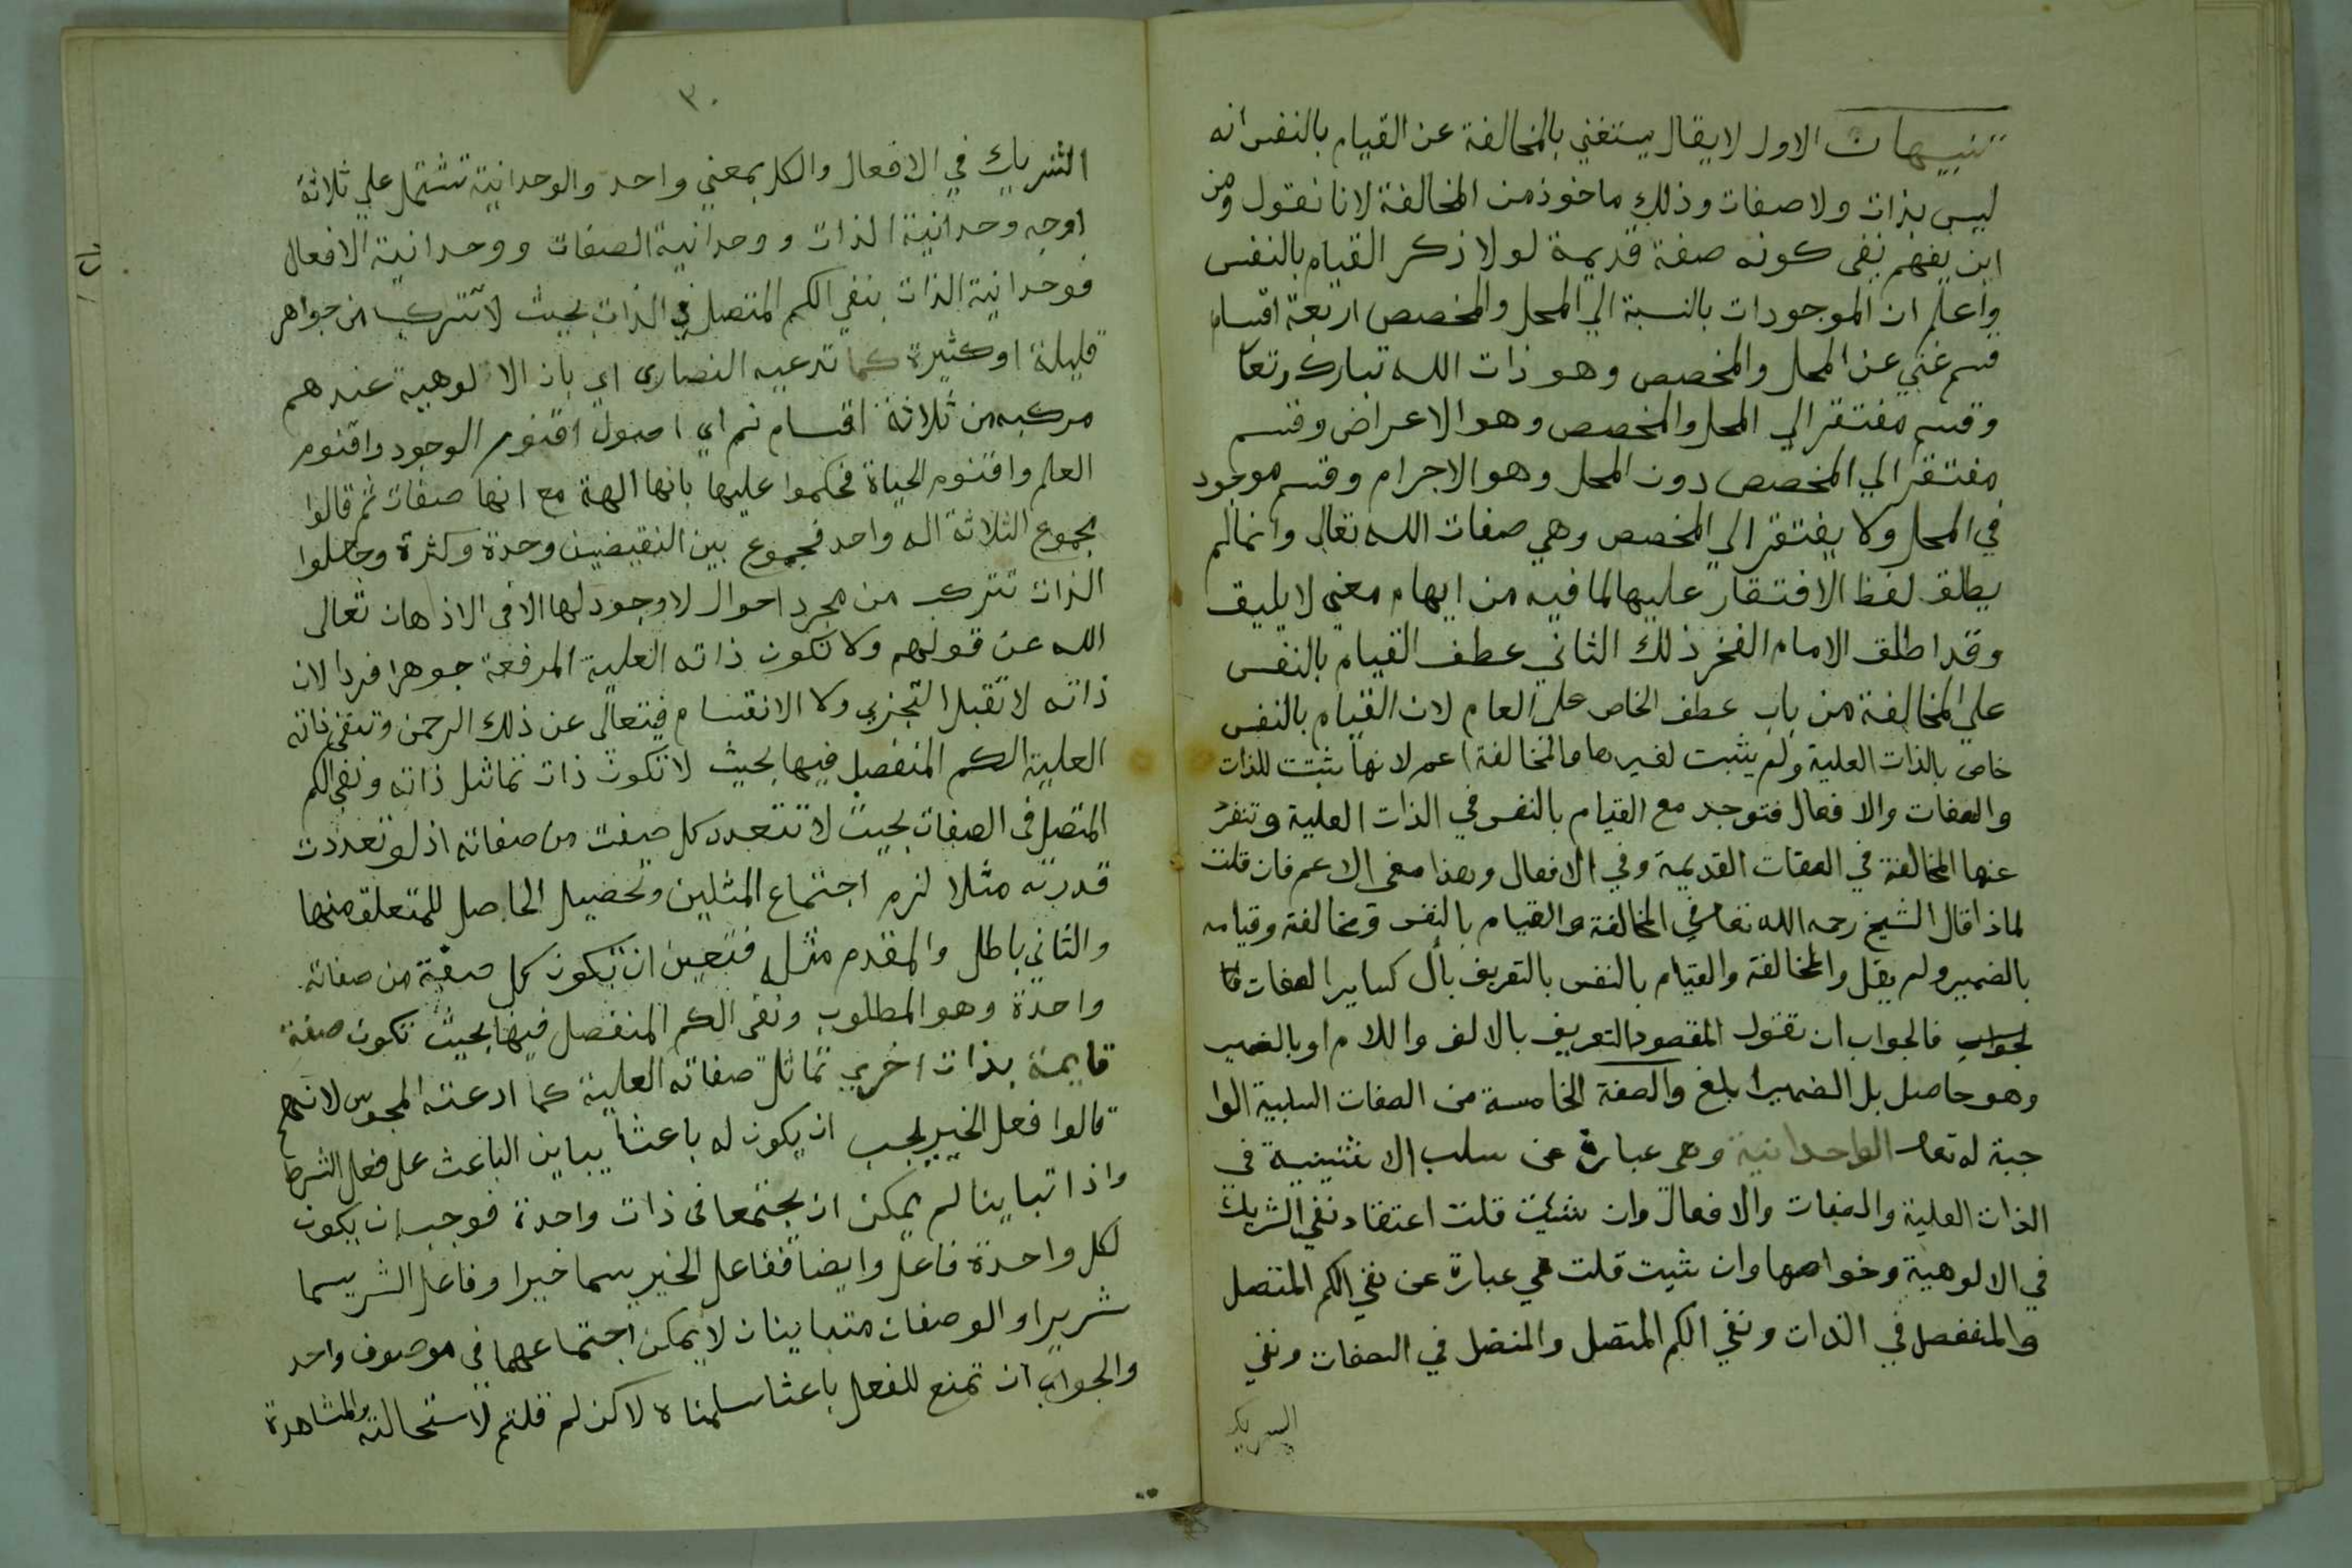 تنبيهات الاول لا يقال يستغني بالمخالفة عن القيام بالنفس انه
ليس بذات ولا صفات وذلك ماخوذ من المخالفة لانا نقول ومن
اين يفهم نفى كونه صفة قديمة لولا ذكر القيام بالنفس
واعلم ان الموجودات بالنسبة الي المحل والمخصص اربعة اقسام
قسم غني عن المحل والمخصص وهو ذات الله تبارك وتعا
وقسم مفتقر الي المحل والمخصص وهو الاعراض وقسم
مفتقر الي المخصص دون المحل وهو الاجرام وقسم موجود
في المحل ولا يفتقر الي المخصص وهي صفات الله تعالى وانما لم
يطلق لفظ الافتقار عليها لما فيه من ايهام معني لا يليق
وقد اطلق الامام الفخر ذلك الثاني عطف القيام بالنفس
علي المخالفة من باب عطف الخاص على العام لان القيام بالنفس
خاص بالذات العلية ولم يثبت لغيرها والمخالفة اعم لانها ثبتت للذات
والصفات والافعال فتوجد مع القيام بالنفس في الذات العلية وتنفرد
عنها المخالفة في الصفات القديمة وفي الافعال وهذا معنى الاعم فان قلت
لماذا قال الشيخ رحمه الله تعالى في المخالفة والقيام بالنفس ومخالفة وقيامه
بالضمير ولم يقل والمخالفة والقيام بالنفس بالتعريف بأل كساير الصفات
فالجواب ان تقول المقصود التعريف بالالف واللام او بالضمير
وهو حاصل بل الضمير ابلغ والصفة الخامسة من الصفات السلبية الوا
جبة له تعالى الواحدانية وهي عبارة عن سلب الاثنينية في
الذات العلية والصفات والافعال وان شئت قلت اعتقاد نفي الشريك
في الالوهية وخواصها وان شيت قلت هي عبارة عن نفي الكم المتصل
والمنفصل في الذات ونفي الكم المتصل والمنفصل في الصفات ونفي
الشريك
٣٠
الشريك في الافعال والكل بمعني واحد والوحدانية تشتمل علي ثلاثة
اوجه وحدانية الذات ووحدانية الصفات ووحدانية الافعال
فوحدانية الذات بنفي الكم المتصل في الذات بحيث لا تتركب من جواهر
قليلة او كثيرة كما تدعيه النصارى اي بان الالوهية عندهم
مركبه من ثلاثة اقسام اي اصول اقنوم الوجود واقنوم
العلم واقنوم الحياة فحكموا عليها بانها الهة مع انها صفات ثم قالوا
مجموع الثلاثة اله واحد فجموع بين النقيضين وحدة وكثرة وجعلوا
الذات تتركب من مجرد احوال لا وجود لها الا في الاذهان تعالى
الله عن قولهم ولا تكون ذاته العلية المرفعة جوهرا فردا لان
ذاته لا تقبل التجزي ولا الانقسام فيتعالى عن ذلك الرحمن وتنفى ذاته
العلية الكم المنفصل فيها بحيث لا تكون ذات تماثل ذاته ونفي الكم
المتصل في الصفات بحيث لا تتعدد كل صفت من صفاته اذ لو تعددت
قدرته مثلا لزم اجتماع المثلين وتحصيل الحاصل للمتعلق منها
والثاني باطل والمقدم مثله فتعين ان تكون كل صفة من صفاته
واحدة وهو المطلوب ونفى الكم المنفصل فيها بحيث تكون صفة
قايمة بذات اخري تماثل صفاته العلية كما ادعته المجوس لانهم
قالوا فعل الخير يجب ان يكون له باعثا يباين الباعث على فعل الشر
واذا تباينا لم يمكن ان يجتمعا في ذات واحدة فوجب ان يكون
لكل واحدة فاعل وايضا ففاعل الخير يسما خيرا وفاعل الشر يسما
شريرا والوصفان متباينان لا يمكن اجتماعهما في موصوف واحد
والجواب ان تمنع للفعل باعثا سلمناه لاكن لم قلتم لاستحالته والمشاهدة